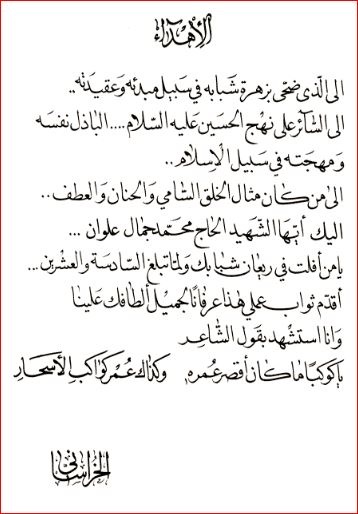 الأهداء
الى الذي ضحى بزهرة شبابه في سبيل مبدئه وعقيدته..
الى الثائر على نهج الحسين عليه السلام.... الباذل نفسه
ومهجته في سبيل الإسلام..
الى من كان مثال الخلق السامي والحنان والعطف..
اليك أيها الشهيد الحاج محمد جمال علوان ...
يا من أفلت في ريعان شبابك ولما تبلغ السادسة والعشرين...
أقدم ثواب عملي هذا عرفانا لجميل ألطافك علينا
وانا استشهد بقول الشاعر
يا كوكبا ما كان أقصر عمره وكذاك عمر كواكب الأسحار
الخراساني